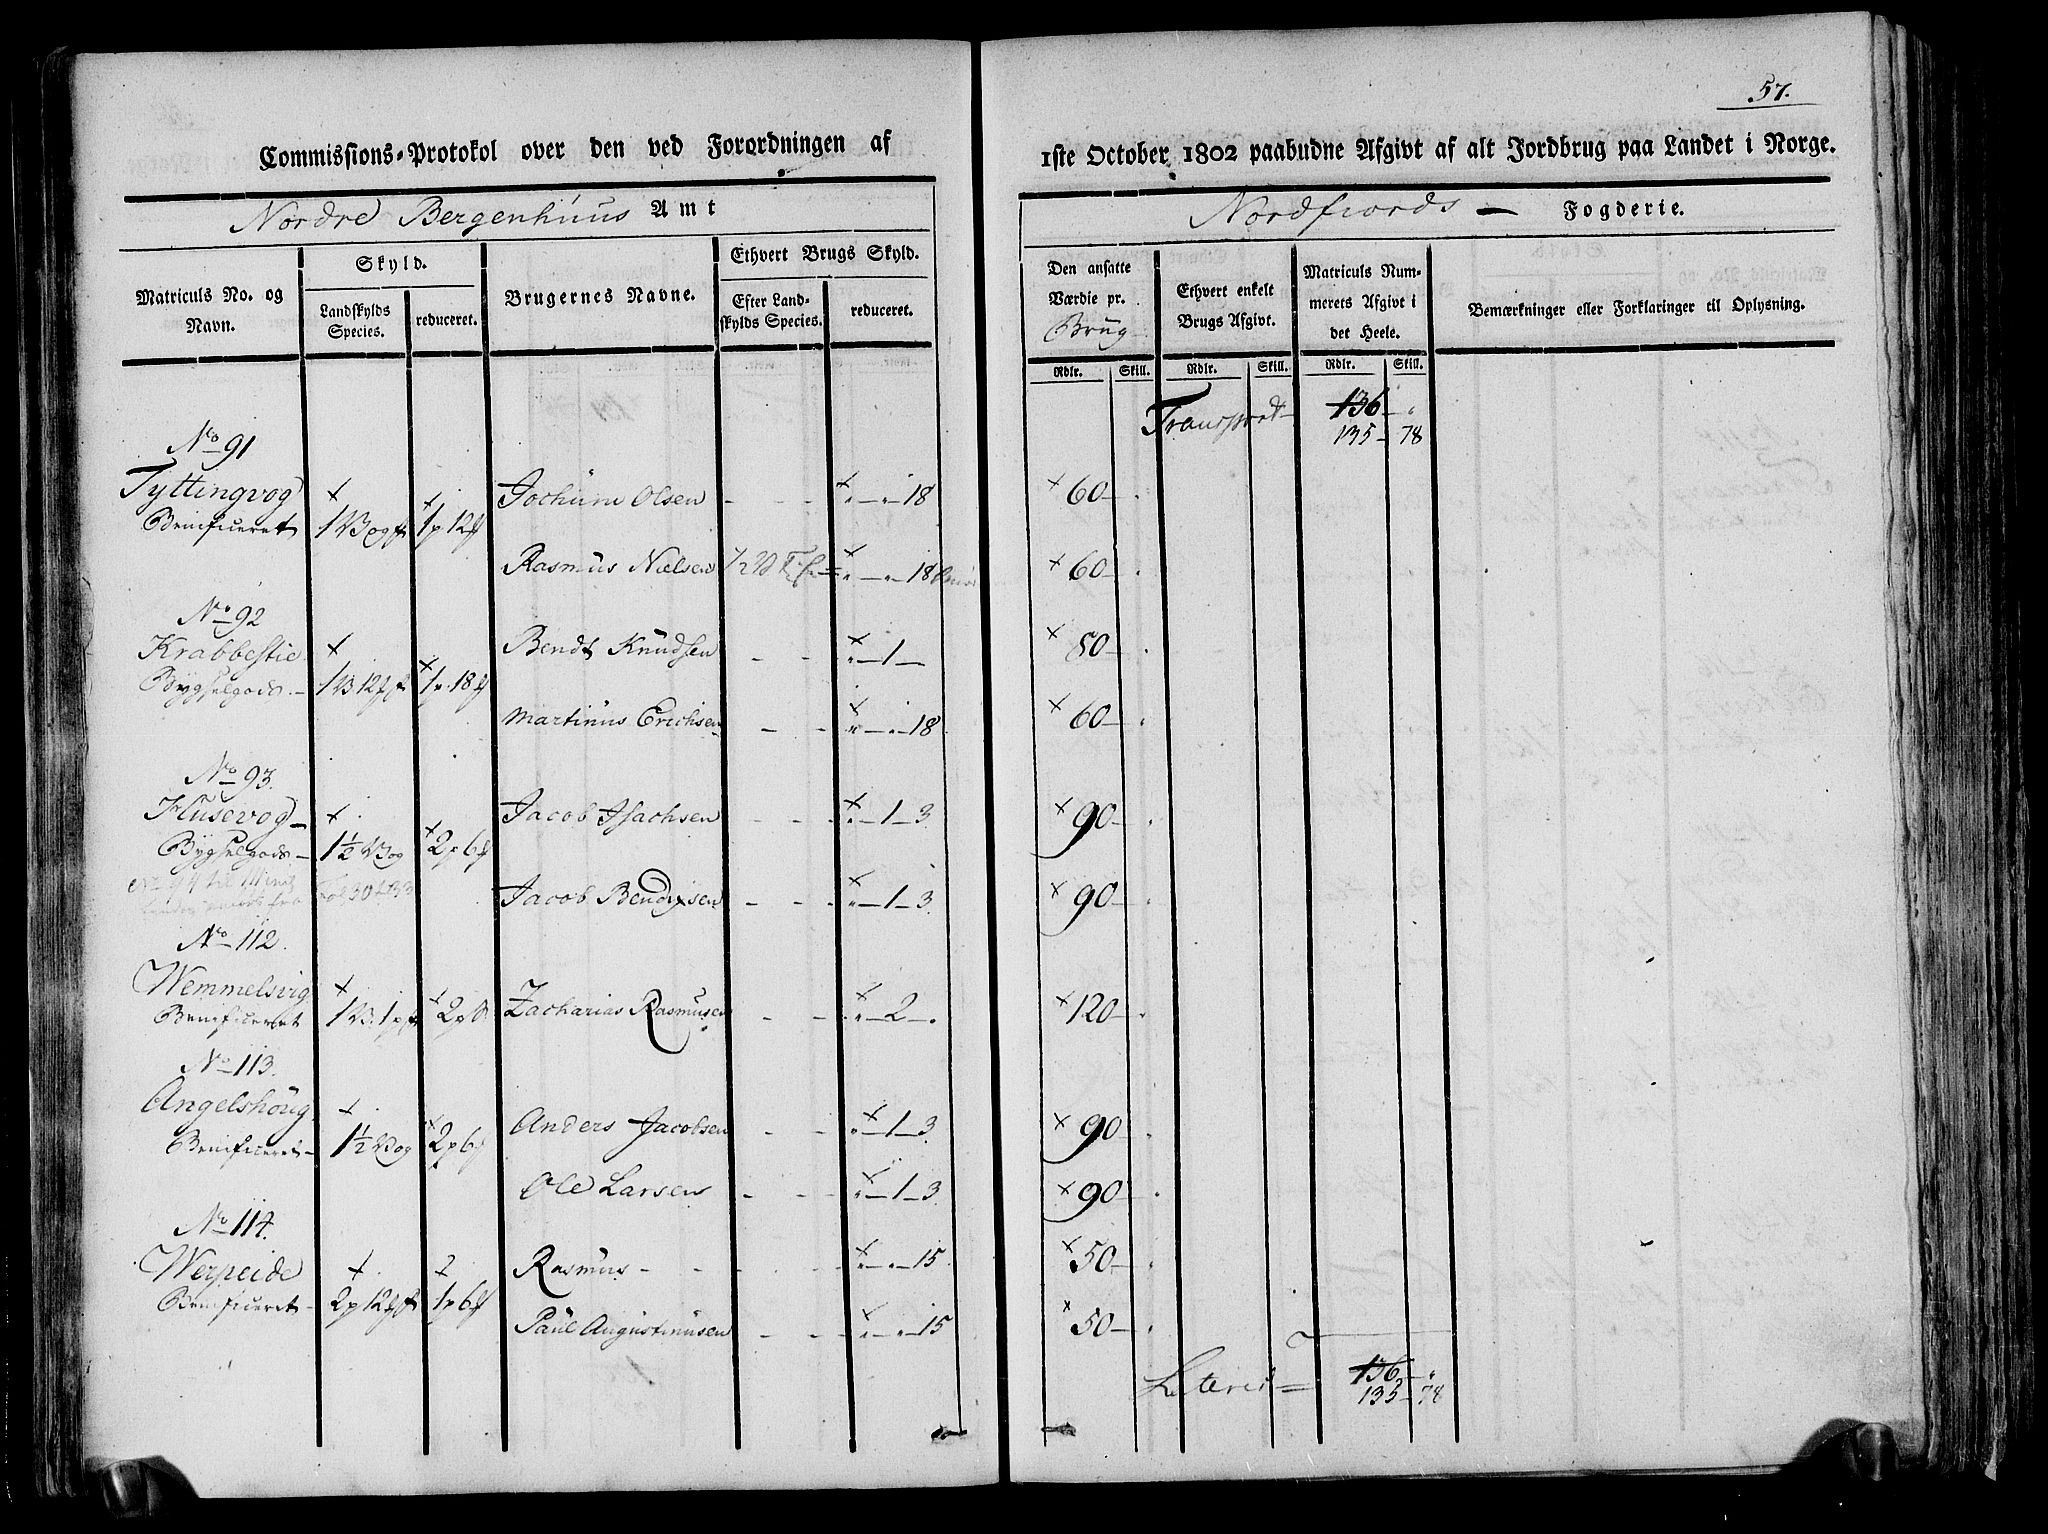 57.
Commissions-Protokol over den ved Forordningen af
1ste October 1802 paabudne Afgivt af alt Jordbrug paa Landet i Norge.
Nordre Bergenhuus Amt
Nordfiords — Fogderie.
Matriculs No. og Navn.
Skyld.
Landskylds Species.
reduceret.
Brugernes Navne.
Ethvert Brugs Skyld.
Efter Landskylds Species.
reduceret.
Den ansatte Værdie pr. Brug
Ethvert enkelt Brugs Afgivt.
Matriculs Nummerets Afgivt i det Heele.
Bemærkninger eller Forklaringer til Oplysning.
Rdlr. Skill. Rdlr. Skill. Rdlr. Skill.
Transport 136 —
135 — 78
No 91
Tyttingvog Jochum Olsen - - - 18 × 60 —
Beneficeret 1 Vog 1 p 12
Rasmus Nielsen 18 × 60 —
No 92
Krabbestie Bendt Knudsen - - 1 — × 80 —
Bygselgods 1 V 12 1 p 18
Martinus Erichsen - - 18 × 60 —
No 93.
Husevog Jacob Isachsen - - 1 — 3 × 90 —
Bygselgods 1½ Vog 2 p 6
Jacob Bendixsen - - 1 — 3 × 90 —
No 112.
Wemmelsvig Zacharias Rasmusen - - 2 — × 120 —
Beneficeret 1 V. 1 p 2 p
No 113.
Angelshoug Anders Jacobsen - - 1 — 3 × 90 —
Beneficeret 1½ Vog 2 p 6
Ole Larsen - - 1 — 3 × 90 —
No 114.
Werpeide Rasmus - - - 15 × 50 —
Beneficeret 2 p 12 1 p 6
Paul Augustinusen - - 15 × 50 —
Lateris 136 —
135 — 78